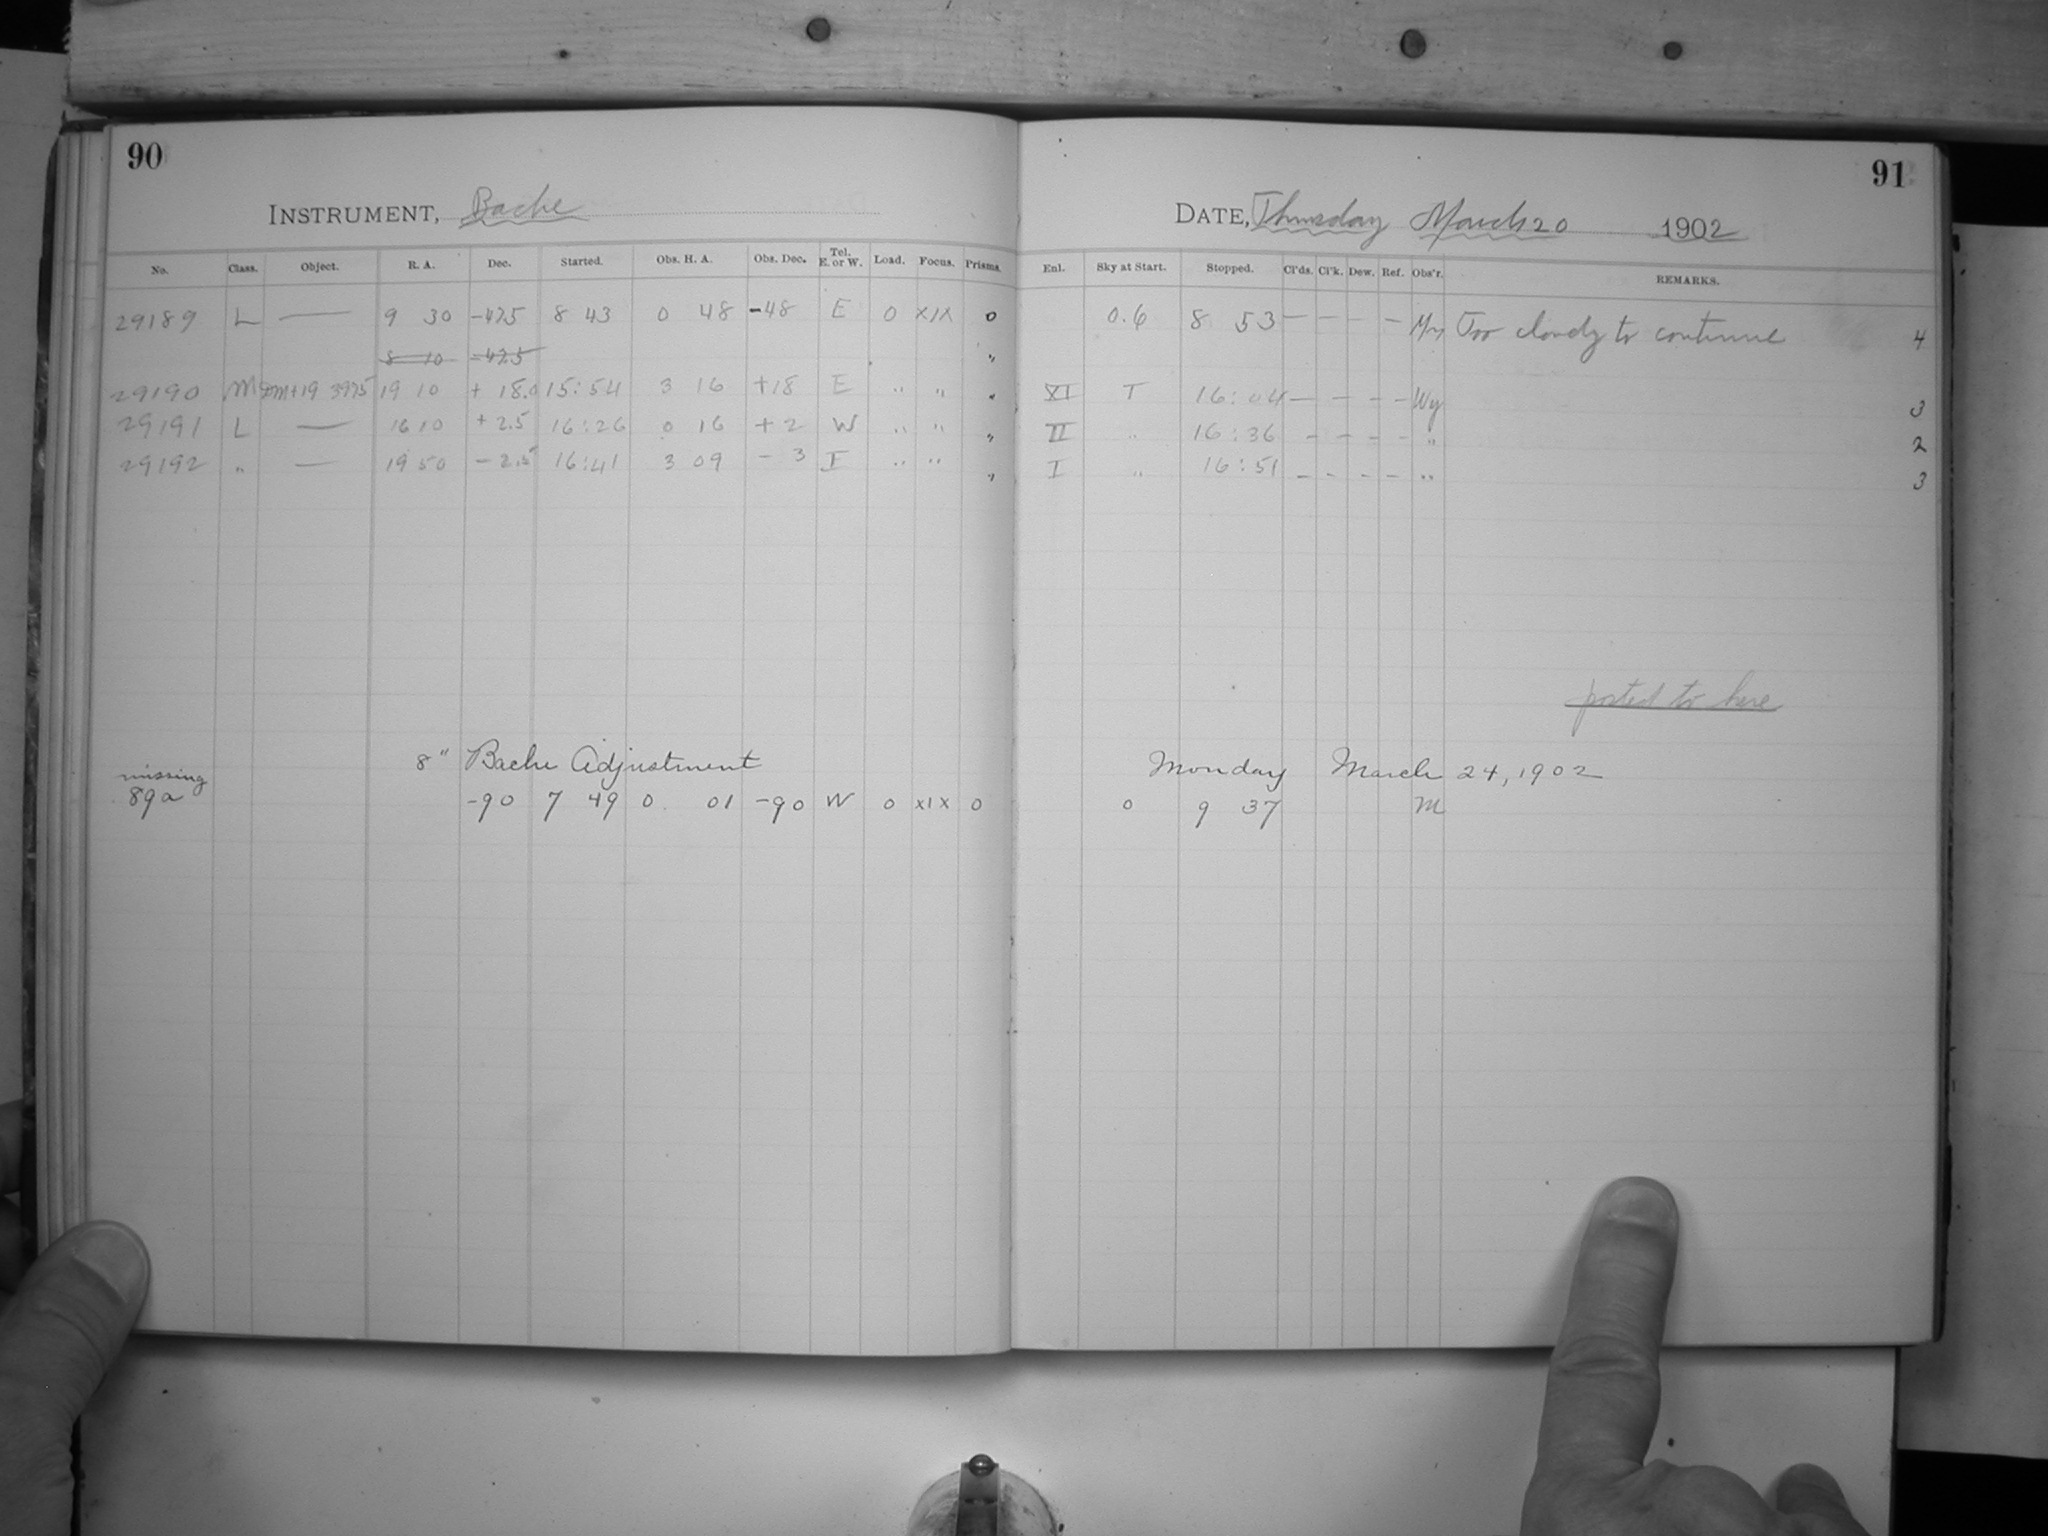 90
91
INSTRUMENT, Bache
DATE, Thursday March 20 1902
No. Class. Object. R. A. Dec. Started. Obs. H. A. Obs. Dec. Tel. E. or W. Load. Focus. Prisms. Enl. Sky at Start. Stopped. Cl'ds. Cl'k. Dew. Ref. Obs'r. REMARKS.
29189 L — 9 30 -42.5 8 43 0 48 -48 E 0 XIX 0 0.6 8 53 — — — — My Too cloudy to continue 4
8 10 -42.5 "
29190 M DM+19 3975 19 10 + 18.0 15:54 3 16 +18 E " " " XI T 16:04 — — — — Wy 3
29191 L — 16 10 + 2.5 16:26 0 16 + 2 W " " " II " 16:36 — — — — " 2
29192 " — 19 50 - 2.5 16:41 3 09 - 3 E " " " I " 16:51 — — — — " 3
posted to here
8" Bache Adjustment Monday March 24, 1902
missing
89a -90 7 49 0 01 -90 W 0 XIX 0 0 9 37 M